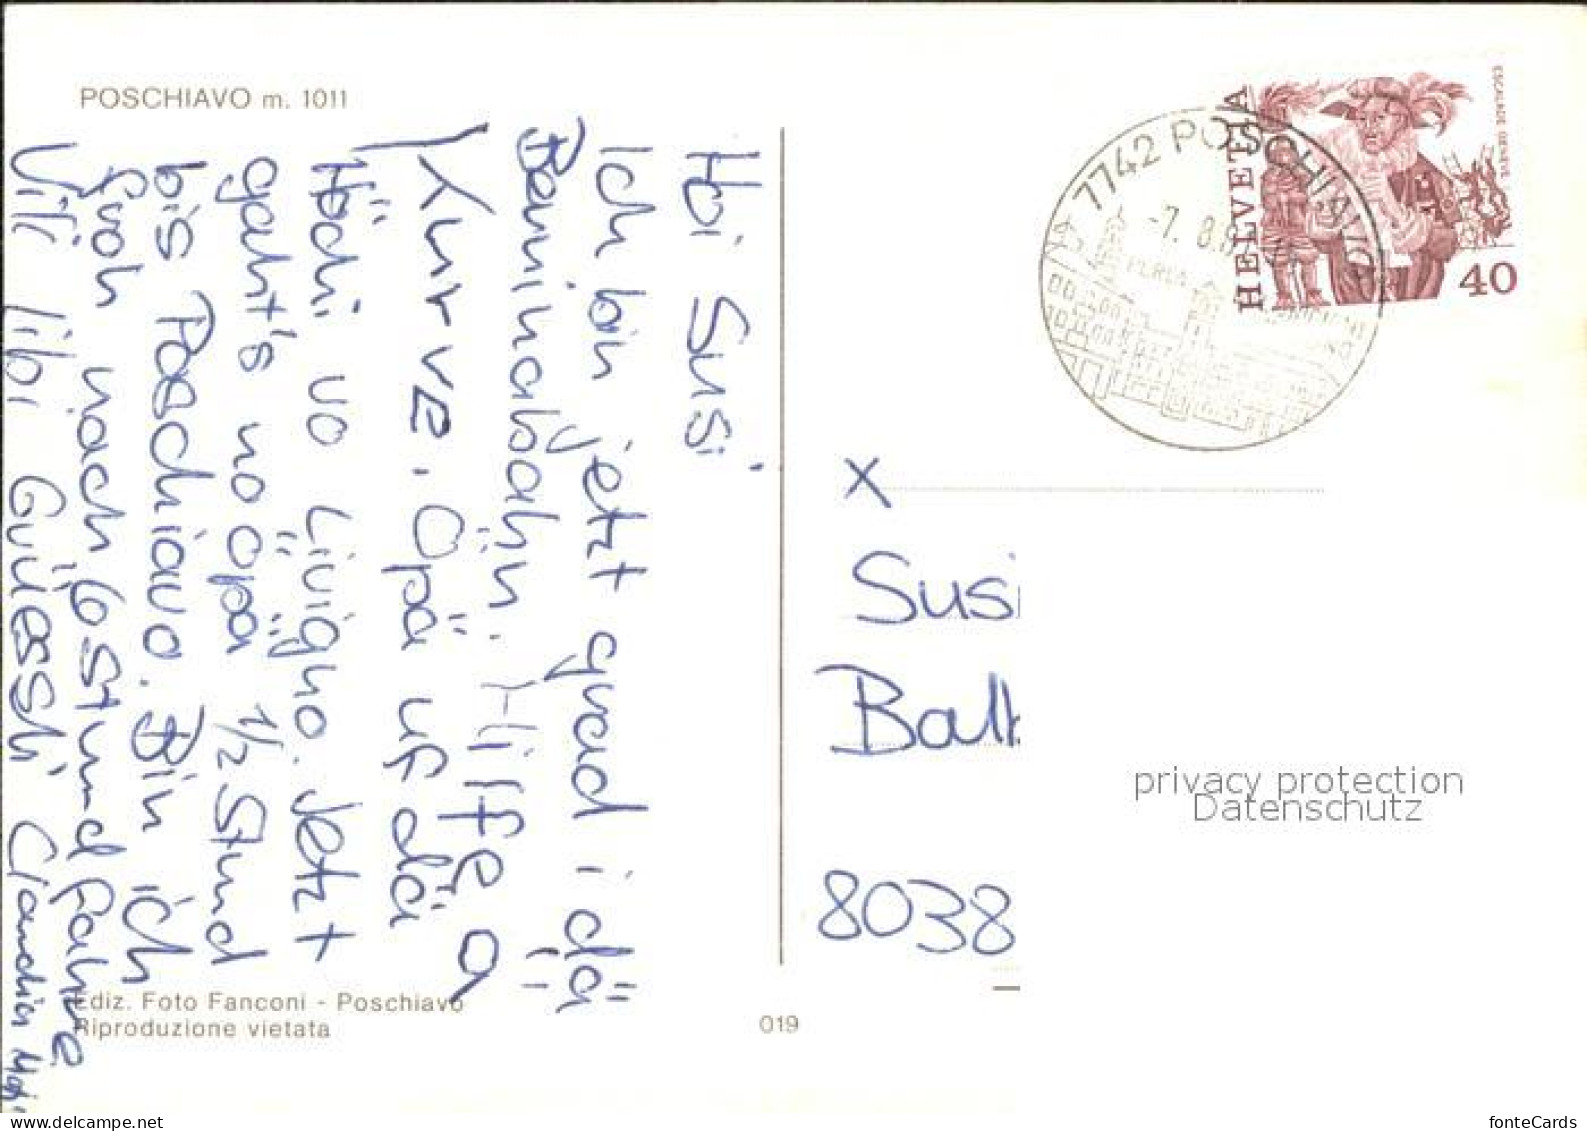 POSCHIAVO m. 1011
Hoi Susi
Ich bin jetzt grad i dä
Berninabahn. Hilfe, a
Kurve. Öpä uf dä
Höchi vo Livigno. Jetzt
gaht's no öpä 1/2 Stund
bis Poschiavo. Bin ich
froh nach 6 Stund Fahre
Vili libi Grüessli Claudia
Ediz. Foto Fanconi - Poschiavo
Riproduzione vietata
019
7742 POSCHIAVO
-7. 8.
PERLA
HELVETIA
ESCALADE GENÈVE
40
X
Susi
8038
privacy protection
Datenschutz
fonteCards
delcampe.net